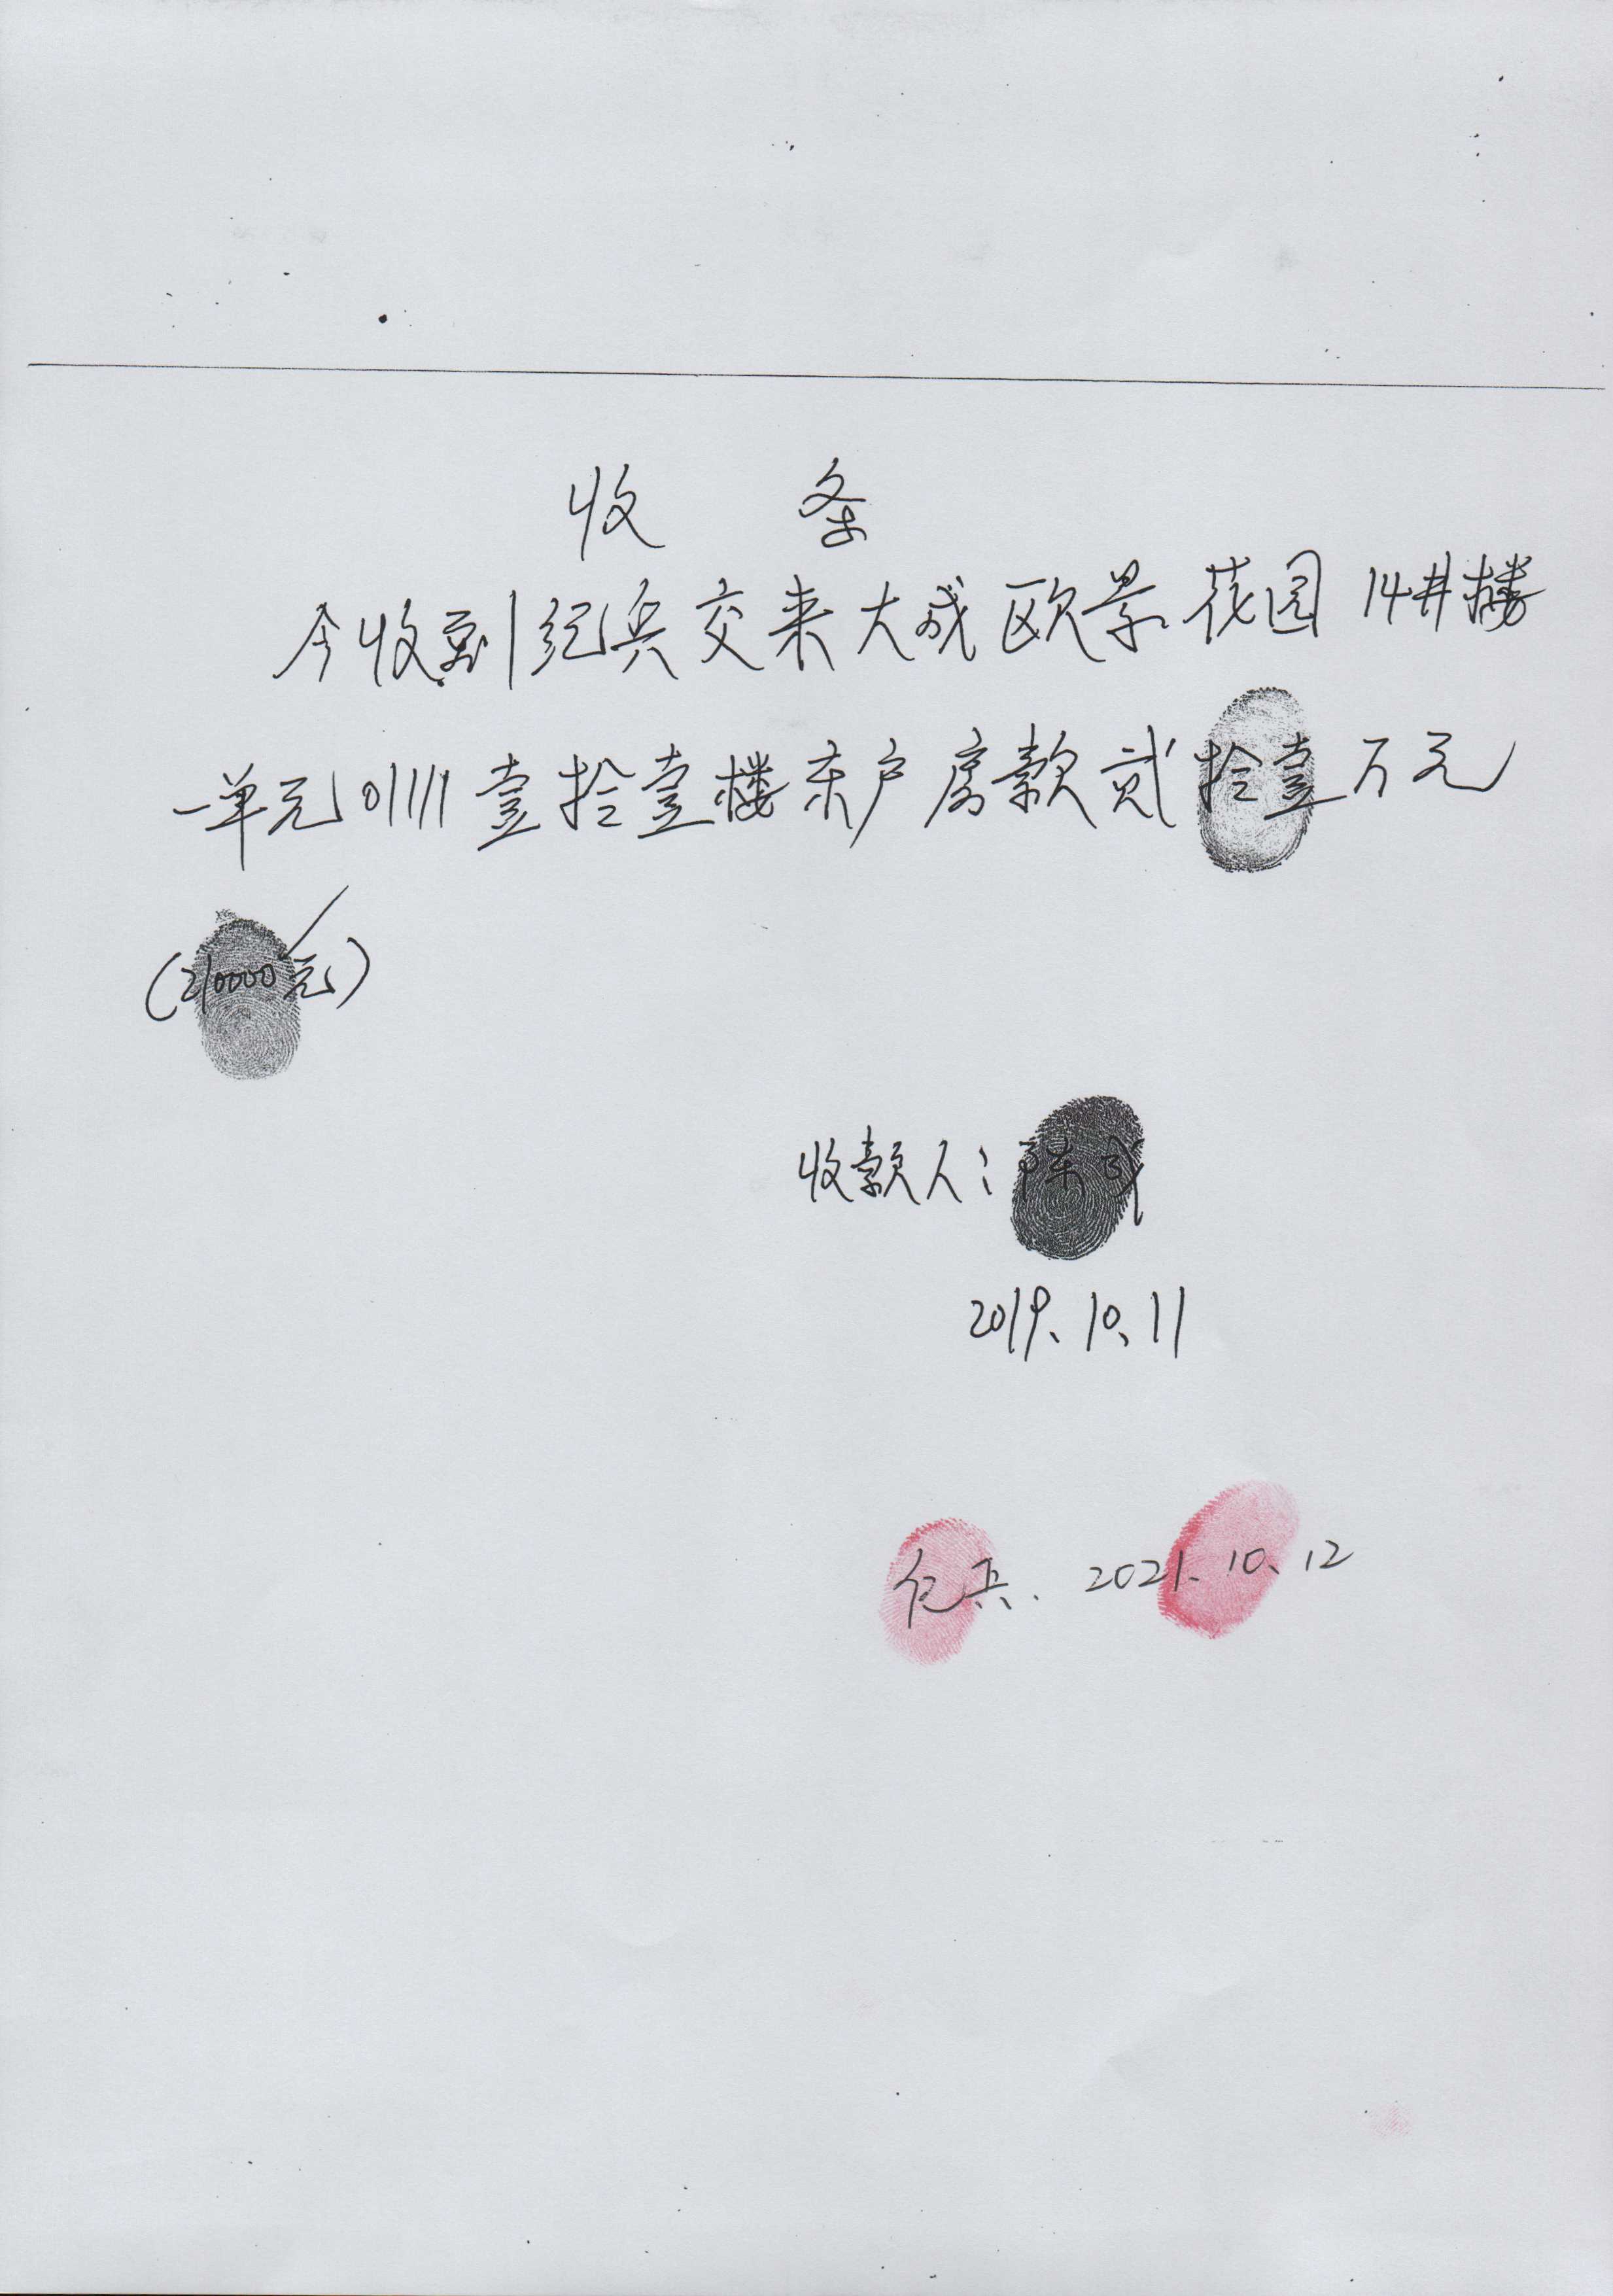 收 条
今收到纪兵交来大成欧景花园14井楼
一单元01111壹拾壹楼东户房款贰拾壹万元
(210000元)
收款人:陈成
2019.10.11
纪兵. 2021.10.12